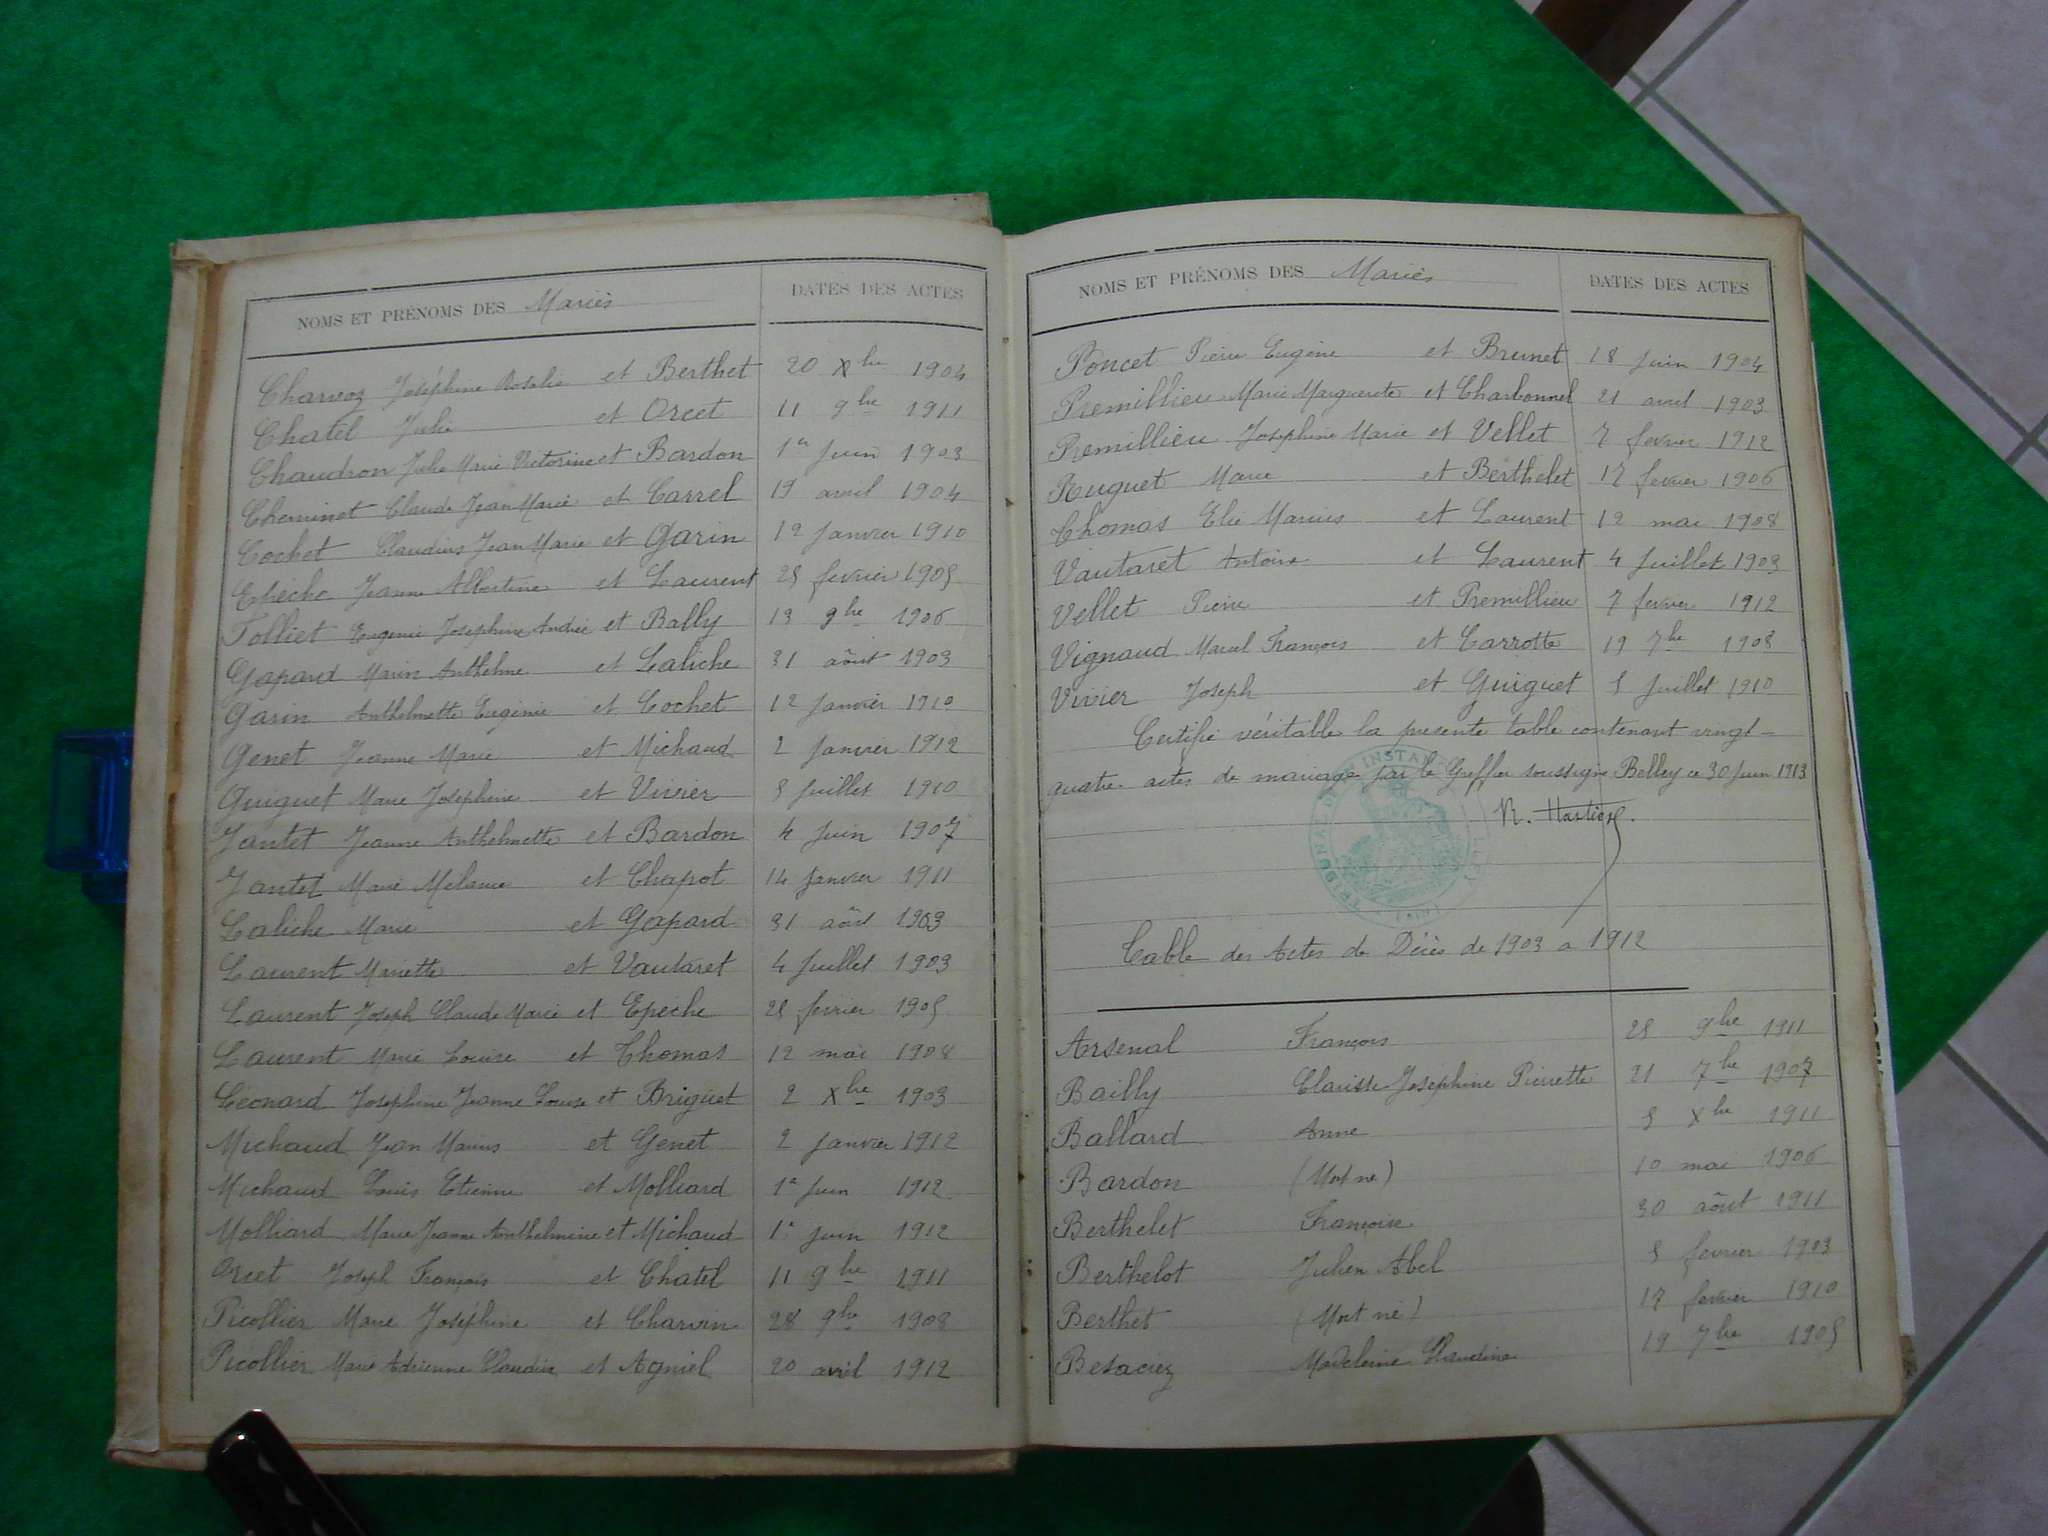 NOMS ET PRÉNOMS DES Mariés DATES DES ACTES
Charvoz Joséphine Rosalie et Berthet 20 Xbre 1904
Chatel Julie et Orcet 11 9bre 1911
Chaudron Julie Marie Victorine et Bardon 1er Juin 1903
Cheminet Claude Jean Marie et Carrel 19 avril 1904
Cochet Claudius Jean Marie et Garin 12 Janvier 1910
Epeche Jeanne Albertine et Laurent 25 fevrier 1905
Folliet Eugenie Joséphine Andrée et Bally 13 9bre 1906
Gapard Marin Anthelme et Laliche 31 août 1903
Garin Anthelmette Eugénie et Cochet 12 Janvier 1910
Genet Jeanne Marie et Michaud 2 Janvier 1912
Guiguet Marie Joséphine et Vivier 5 Juillet 1910
Jantet Jeanne Anthelmette et Bardon 4 Juin 1907
Jantet Marie Melanie et Chapot 14 Janvier 1911
Laliche Marie et Gapard 31 août 1903
Laurent Mariette et Vautaret 4 Juillet 1903
Laurent Joseph Claude Marie et Epeche 25 février 1905
Laurent Marie Louise et Thomas 12 mai 1908
Léonard Joséphine Jeanne Louise et Briguet 2 Xbre 1903
Michaud Jean Marius et Genet 2 Janvier 1912
Michaud Louis Etienne et Molliard 1er Juin 1912
Molliard Marie Jeanne Anthelmine et Michaud 1er Juin 1912
Orcet Joseph François et Chatel 11 9bre 1911
Picollier Marie Joséphine et Charvin 28 9bre 1908
Picollier Marie Adrienne Claudia et Agniel 20 avril 1912
NOMS ET PRÉNOMS DES Mariés DATES DES ACTES
Poncet Pierre Eugène et Brunet 18 Juin 1904
Premillieu Marie Marguerite et Charbonnel 21 avril 1903
Premillieu Joséphine Marie et Vellet 7 fevrier 1912
Ruguet Marie et Berthelet 17 fevrier 1906
Thomas Elie Marius et Laurent 12 mai 1908
Vautaret Antoine et Laurent 4 Juillet 1903
Vellet Pierre et Premillieu 7 fevrier 1912
Vignaud Marcel François et Carrotte 19 7bre 1908
Vivier Joseph et Guiguet 5 Juillet 1910
Certifié véritable la presente table contenant vingt-
quatre actes de mariage par le Greffier soussigné Belley ce 30 Juin 1913
Table des Actes de Décès de 1903 a 1912
Arsenal François 25 9bre 1911
Bailly Clarisse Joséphine Pierrette 21 7bre 1907
Ballard Anne 5 Xbre 1911
Bardon (Mort né) 10 mai 1906
Berthelet Françoise 30 août 1911
Berthelot Julien Abel 5 fevrier 1903
Berthet (Mort né) 17 fevrier 1910
Besaciez Madeleine Claudine 19 7bre 1905